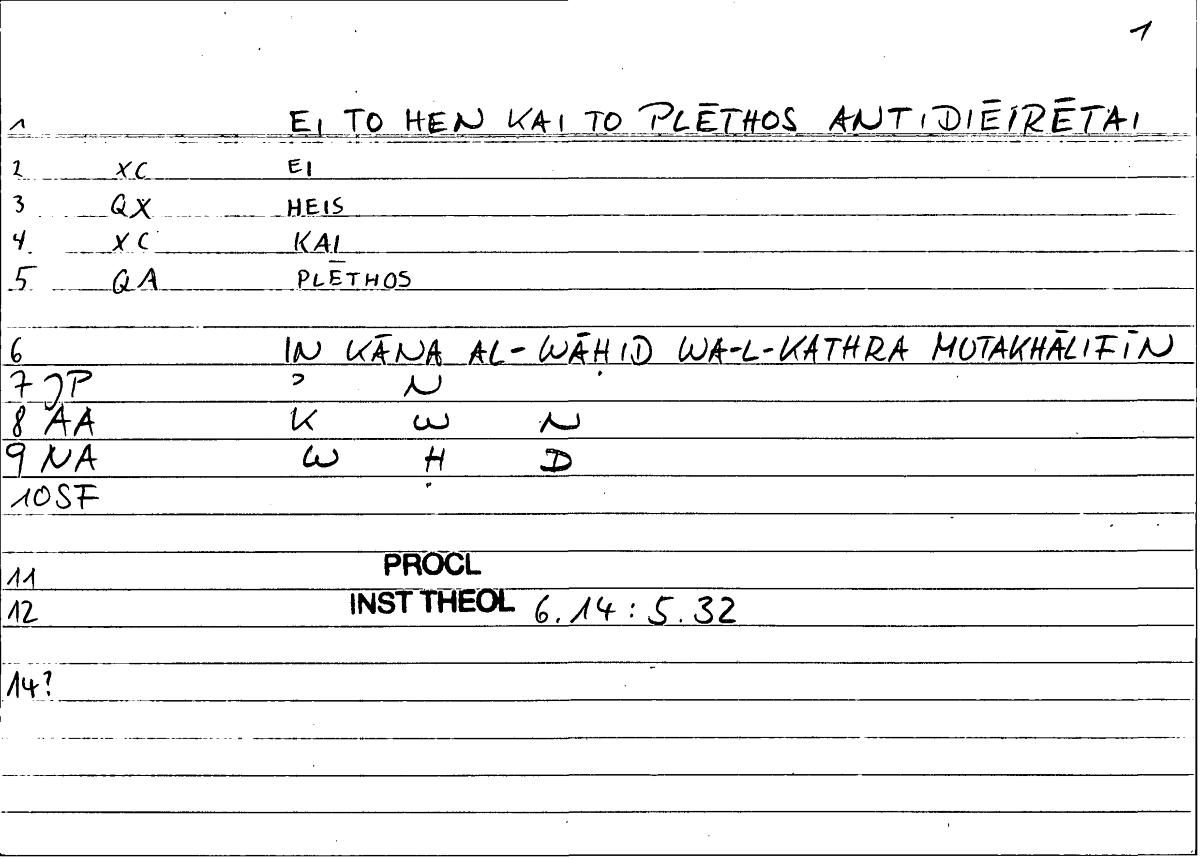 1
1 EI TO HEN KAI TO PLĒTHOS ANTIDIĒIRĒTAI
2 XC EI
3 QX HEIS
4. XC KAI
5 QA PLĒTHOS
6 IN KĀNA AL-WĀḤID WA-L-KATHRA MUTAKHĀLIFĪN
7 JP ʾ N
8 AA K W N
9 NA W Ḥ D
10 SF
11 PROCL
12 INST THEOL 6.14:5.32
14?